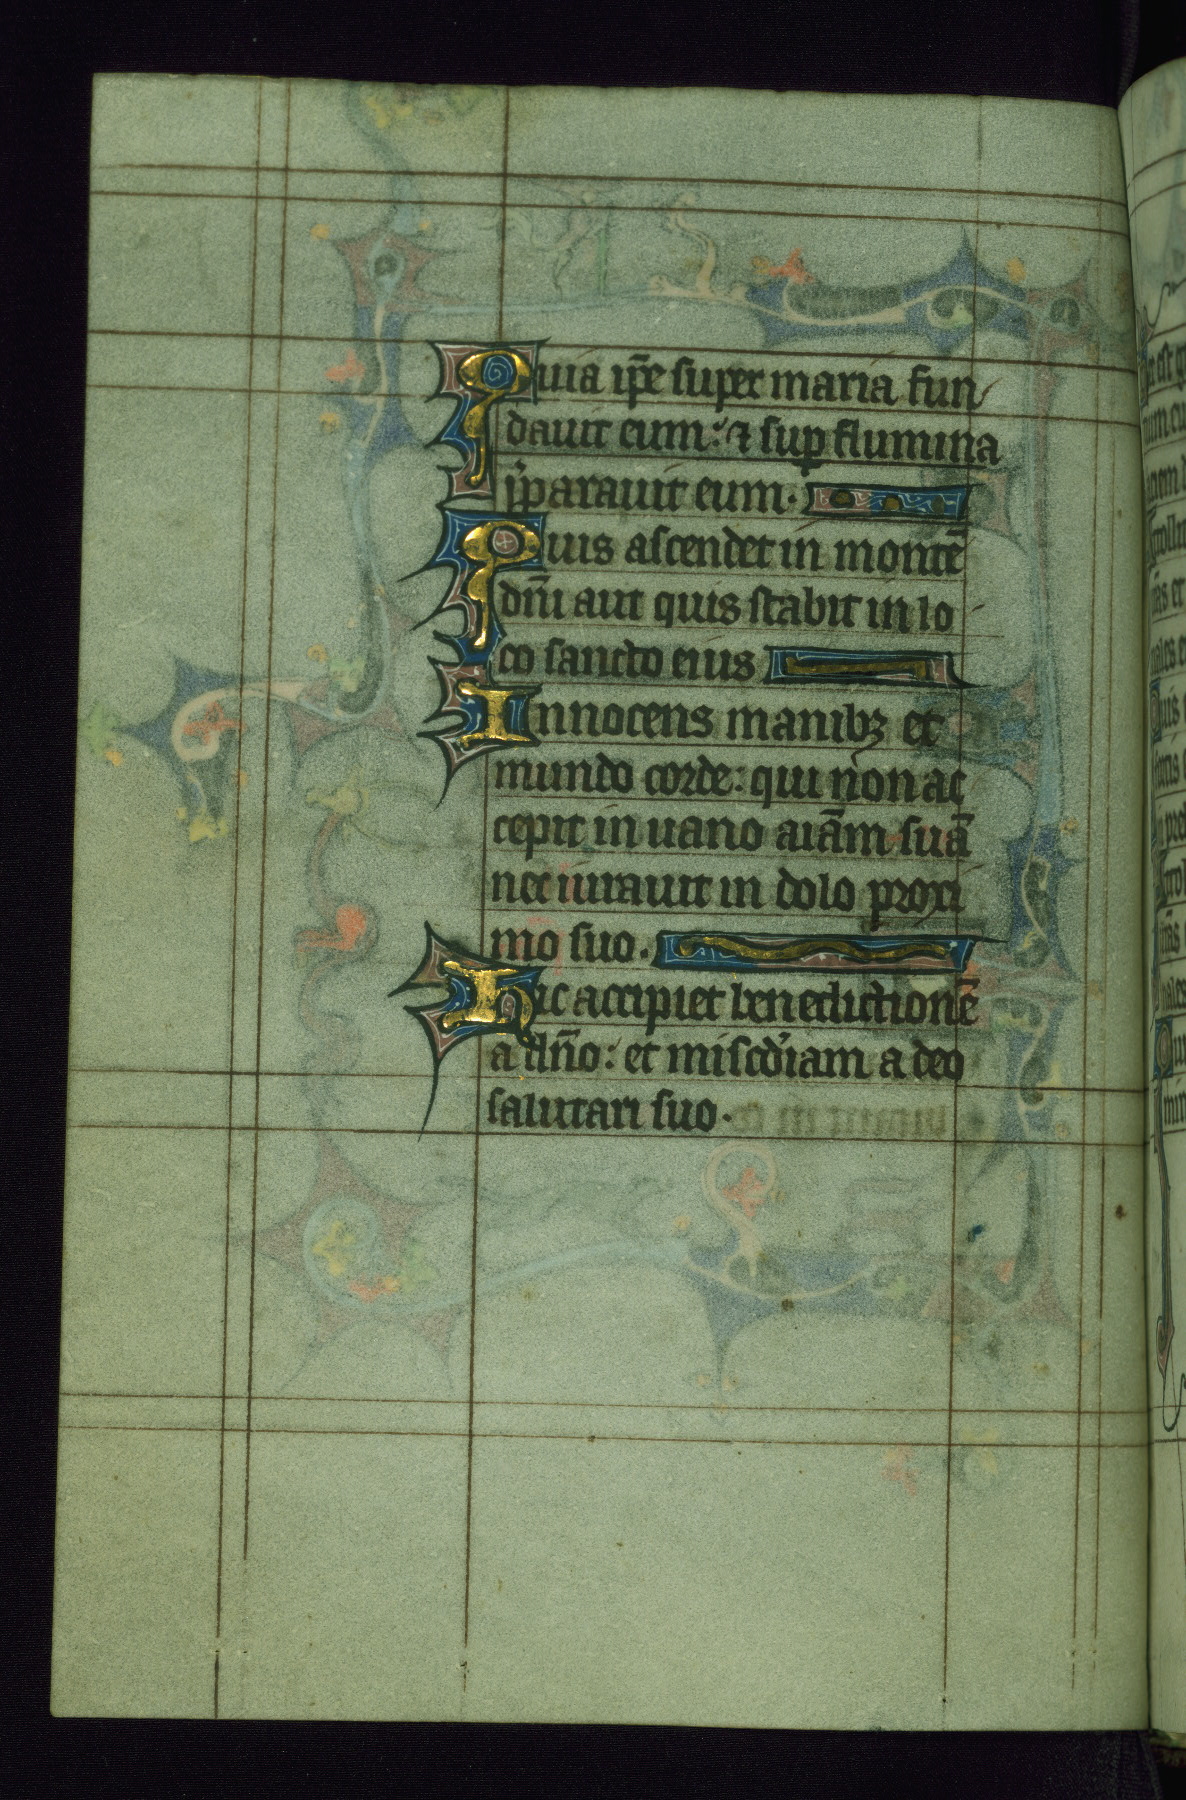 Quia ip̄e super maria fun
dauit eum: ⁊ sup flumina
p̄parauit eum.
Quis ascendet in montē
dn̄i aut quis stabit in lo
co sancto eius
Innocens manibꝫ et
mundo corde: qui non ac
cepit in uano aīam suā
nec iurauit in dolo proxi
mo suo.
Hic accipiet benedictionē
a dn̄o: et misc̄diam a deo
salutari suo.